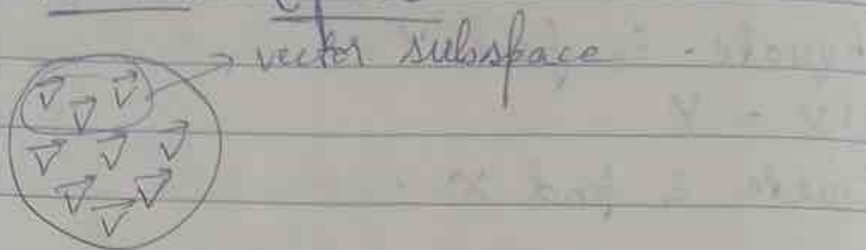 vector subspace.
V⃗ V⃗ V⃗
V⃗ V⃗ V⃗
V⃗ V⃗
V⃗